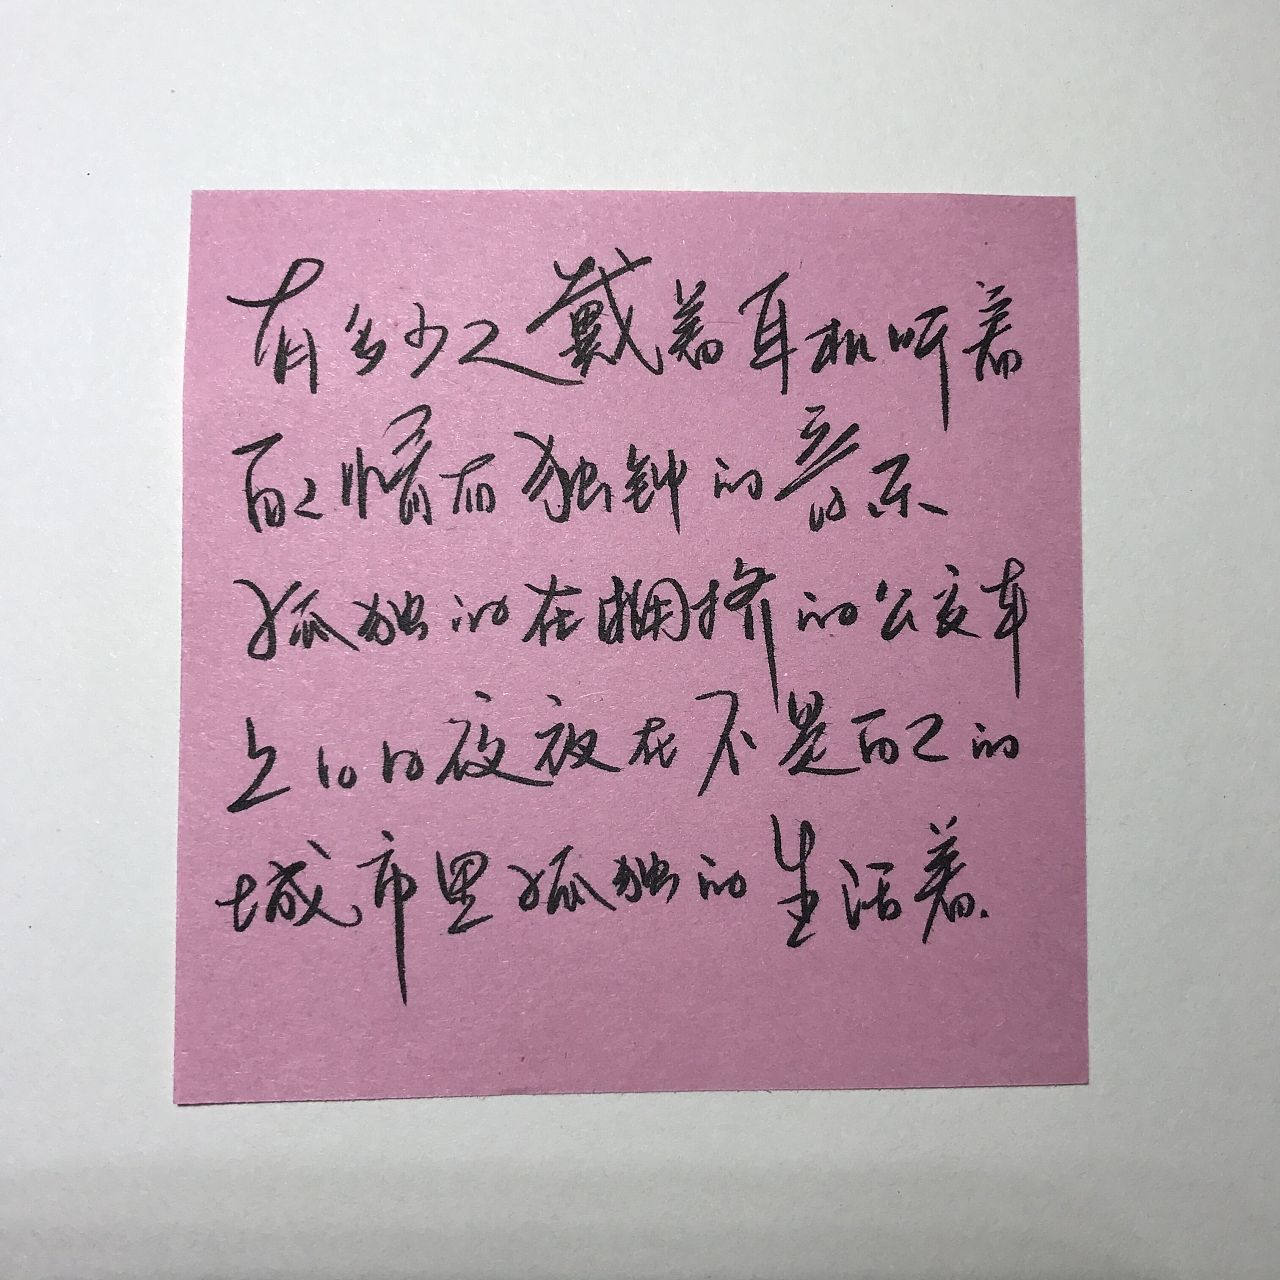 有多少人戴着耳机听着
自己情有独钟的音乐
孤独的在拥挤的公交车
上 日日夜夜在不是自己的
城市里孤独的生活着.